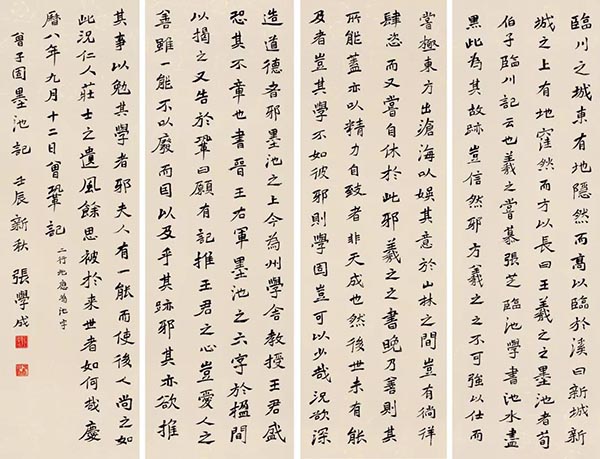 臨川之城東有地隱然而高以臨於溪曰新城新
城之上有地窪然而方以長曰王羲之之墨池者荀
伯子臨川記云也羲之嘗慕張芝臨池學書池水盡
黑此為其故跡豈信然邪方羲之之不可強以仕而
嘗極東方出滄海以娛其意於山林之間豈有徜徉
肆恣而又嘗自休於此邪羲之之書晚乃善則其
所能蓋亦以精力自致者非天成也然後世未有能
及者豈其學不如彼邪則學固豈可以少哉況欲深
造道德者邪墨池之上今為州學舍教授王君盛
恐其不章也書晉王右軍墨池之六字於楹間
以揭之又告於鞏曰願有記推王君之心豈愛人之
善雖一能不以廢而因以及乎其跡邪其亦欲推
其事以勉其學者邪夫人有一能而使後人尚之如
此況仁人莊士之遺風餘思被於來世者如何哉慶
曆八年九月十二日曾鞏記 二行地應為池字
曾子固墨池記 壬辰新秋 張學成